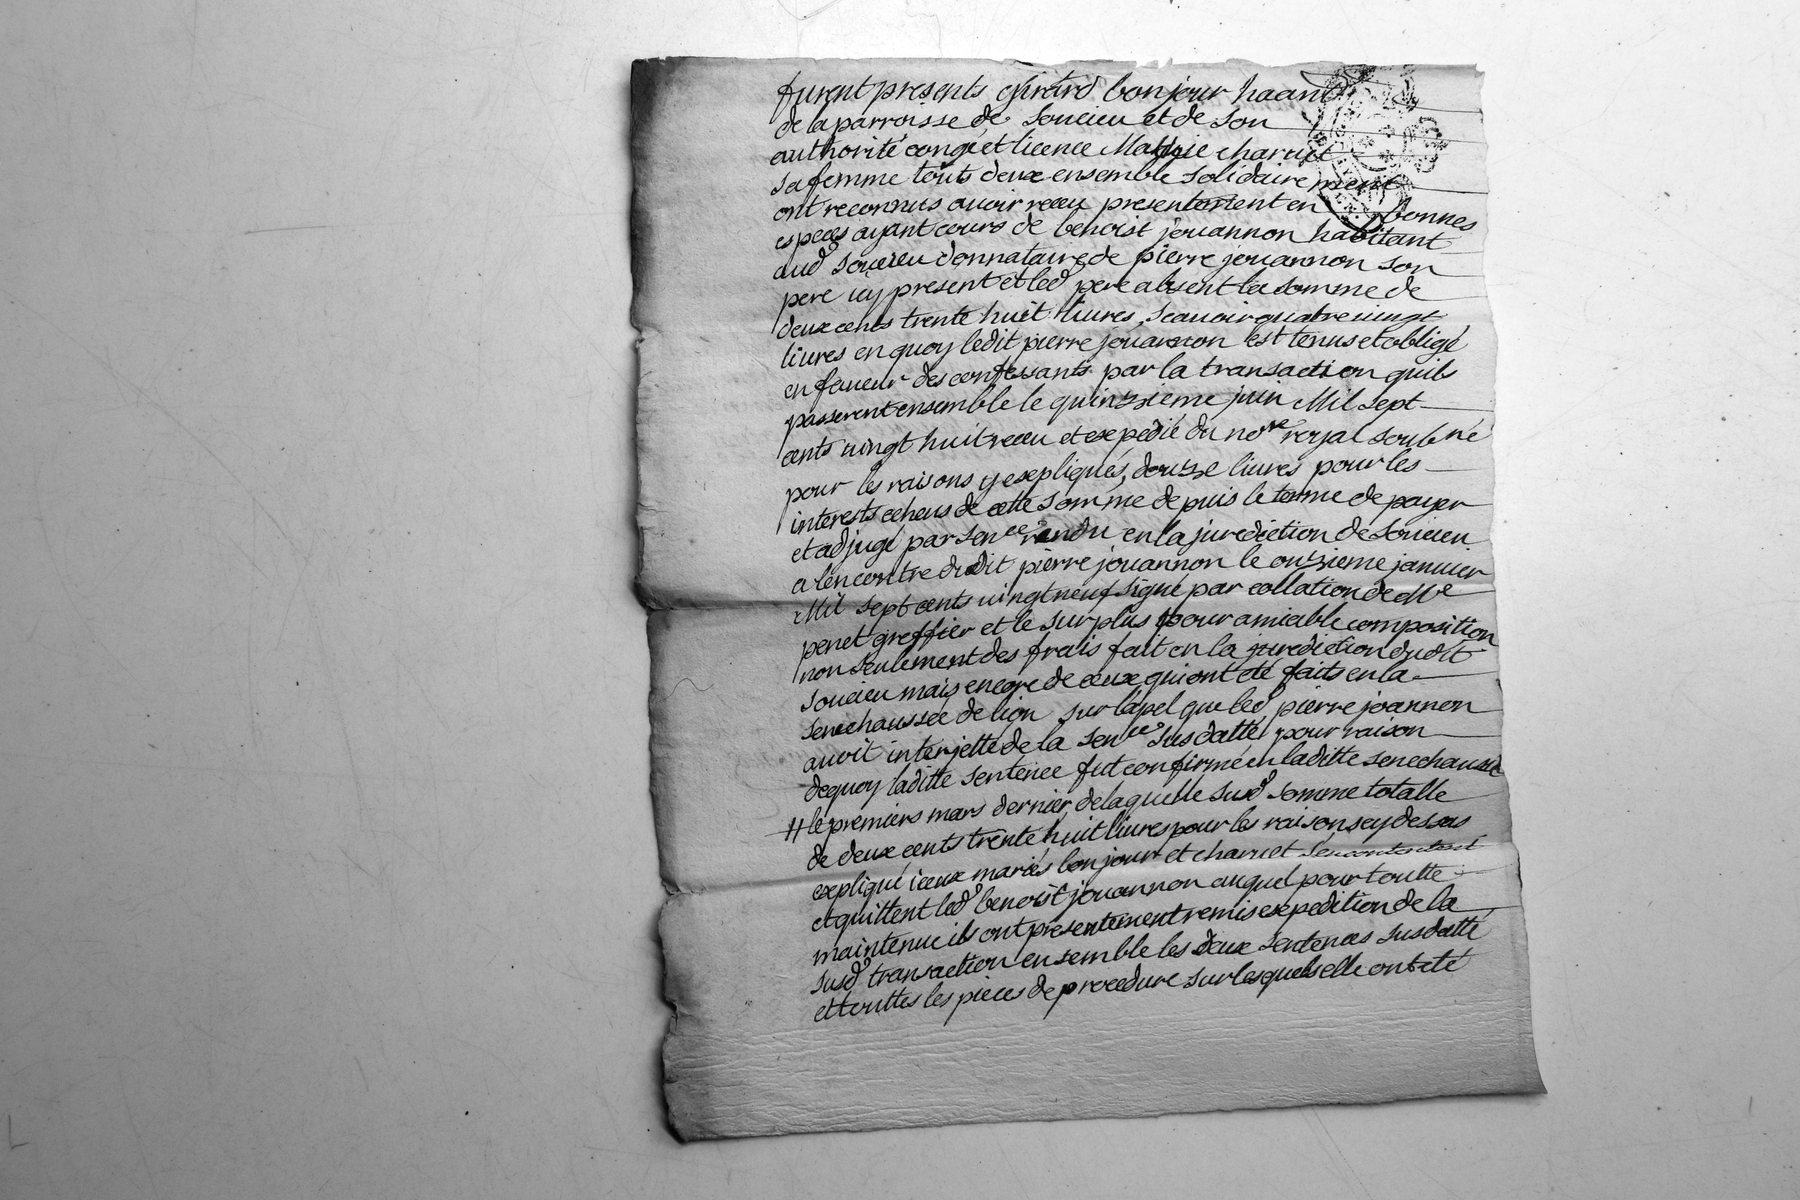 furent presents girard bonjour haant
de la parroisse de Soucieu et de son
authorité congé et licence charvet
sa femme touts deux ensemble solidairement
ont reconnus avoir receu presentement en bonnes
especes ayant cours de benoist jouannon habitant
aud soucieu donnataire de pierre jouannon son
pere icy present et led pere absent la somme de
deux cents trente huit livres, scavoir quatre vingt
livres en quoy ledit pierre jouannon est tenus et obligé
en faveur des confessants par la transaction quils
passerent ensemble le quinzzieme juin Mil sept
cents vingt huit receu et expedié du nore royal soub né
pour les raisons y expliqués, douzze livres pour les
interests echeus de cette somme depuis le terme de payer
et adjugé par sence rendu en la jurediction de Soucieu
a lencontre dudit pierre jouannon le onzzieme janvier
Mil sept cents vingt neuf signé par collation de Me
penet greffier et le surplus pour amiable composition
non seulement des frais fait en la jurediction dudit
soucieu mais encore de ceux qui ont eté faits en la
senechaussée de lion sur lapel que led pierre joannon
avoit interjetté de la sence susdatté pour raison
dequoy laditte sentence fut confirmé en laditte senechaussé
le premiers mars dernier, de laquelle susd somme totalle
de deux cents trente huit livres pour les raisons cy dessus
expliqué iceux mariés bonjour et charvet sen contentent
et quittent led benoist jouannon auquel pour toutte
maintenue ils ont presentement remis expedition de la
susd transaction ensemble les deux sentences susdatté
et touttes les pieces de procedure sur lesquels elle ont eté